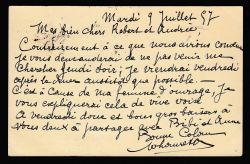 Mardi 9 Juillet 57
Mes bien chers Robert et Andrée
Contrairement à ce que nous avions convenu
je vous demanderai de ne pas venir me
chercher jeudi soir, je viendrai vendredi
après le dîner aussitôt que possible —
c'est à cause de ma femme d'ouvrage, je
vous expliquerai cela de vive voix
A vendredi donc et bons gros baisers à
vous deux à partager avec et Anne
Bonne